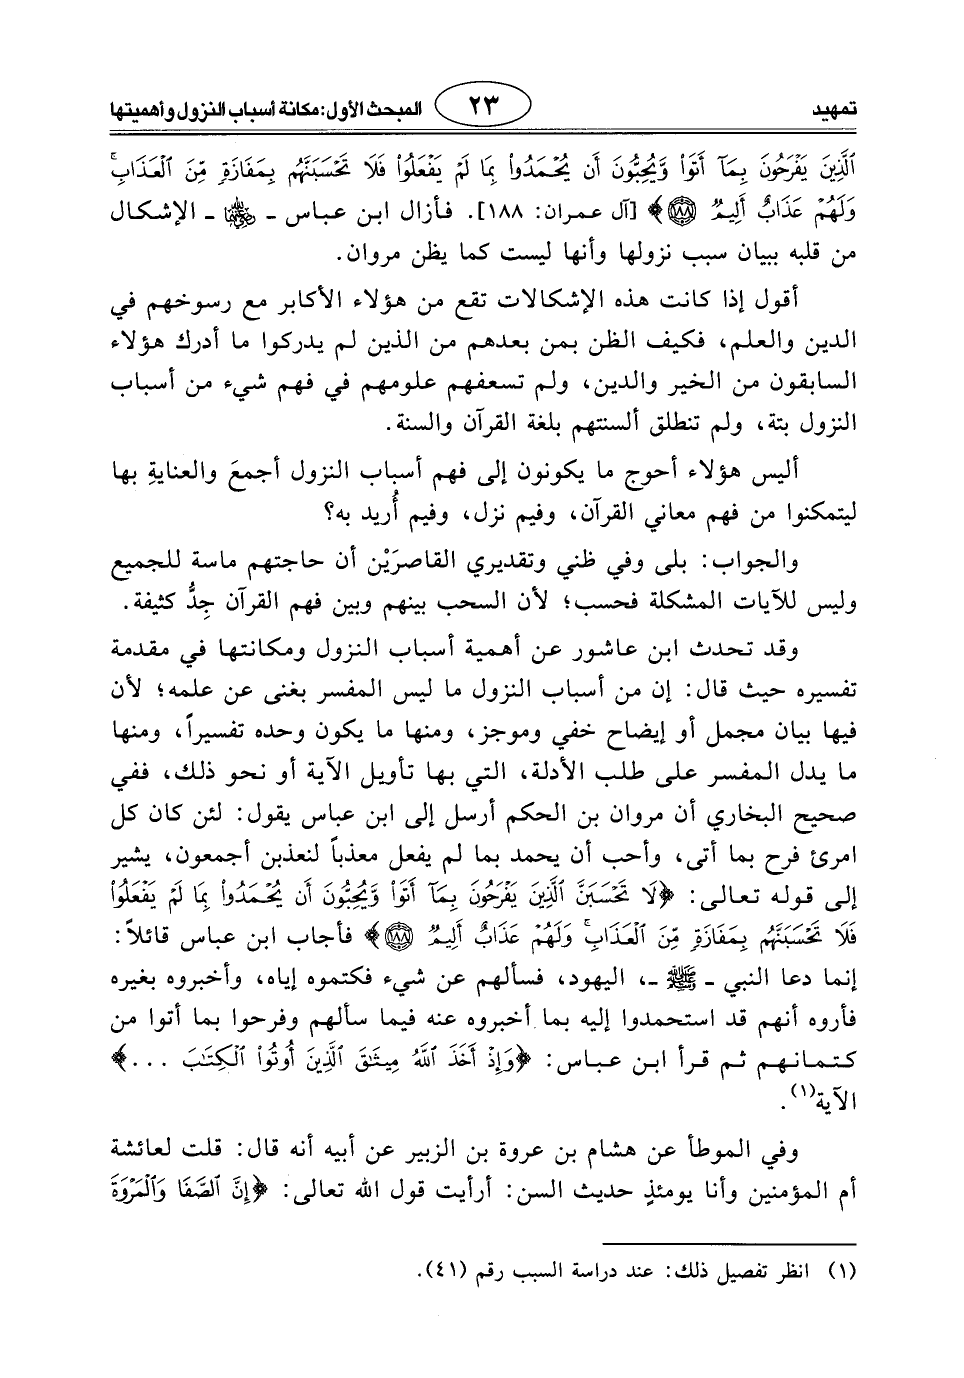 تمهيد ٢٣ المبحث الأول: مكانة أسباب النزول وأهميتها
ٱلَّذِينَ يَفْرَحُونَ بِمَآ أَتَوا۟ وَّيُحِبُّونَ أَن يُحْمَدُوا۟ بِمَا لَمْ يَفْعَلُوا۟ فَلَا تَحْسَبَنَّهُم بِمَفَازَةٍ مِّنَ ٱلْعَذَابِ ۖ
وَلَهُمْ عَذَابٌ أَلِيمٌ ١٨٨﴾ [آل عمران: ١٨٨]. فأزال ابن عباس ـ رضي الله عنهما ـ الإشكال
من قلبه ببيان سبب نزولها وأنها ليست كما يظن مروان.
أقول إذا كانت هذه الإشكالات تقع من هؤلاء الأكابر مع رسوخهم في
الدين والعلم، فكيف الظن بمن بعدهم من الذين لم يدركوا ما أدرك هؤلاء
السابقون من الخير والدين، ولم تسعفهم علومهم في فهم شيء من أسباب
النزول بتة، ولم تنطلق ألسنتهم بلغة القرآن والسنة.
أليس هؤلاء أحوج ما يكونون إلى فهم أسباب النزول أجمعَ والعنايةِ بها
ليتمكنوا من فهم معاني القرآن، وفيم نزل، وفيم أُريد به؟
والجواب: بلى وفي ظني وتقديري القاصرَيْن أن حاجتهم ماسة للجميع
وليس للآيات المشكلة فحسب؛ لأن السحب بينهم وبين فهم القرآن جِدُّ كثيفة.
وقد تحدث ابن عاشور عن أهمية أسباب النزول ومكانتها في مقدمة
تفسيره حيث قال: إن من أسباب النزول ما ليس المفسر بغنى عن علمه؛ لأن
فيها بيان مجمل أو إيضاح خفي وموجز، ومنها ما يكون وحده تفسيراً، ومنها
ما يدل المفسر على طلب الأدلة، التي بها تأويل الآية أو نحو ذلك، ففي
صحيح البخاري أن مروان بن الحكم أرسل إلى ابن عباس يقول: لئن كان كل
امرئ فرح بما أتى، وأحب أن يحمد بما لم يفعل معذباً لنعذبن أجمعون، يشير
إلى قوله تعالى: ﴿لَا تَحْسَبَنَّ ٱلَّذِينَ يَفْرَحُونَ بِمَآ أَتَوا۟ وَّيُحِبُّونَ أَن يُحْمَدُوا۟ بِمَا لَمْ يَفْعَلُوا۟
فَلَا تَحْسَبَنَّهُم بِمَفَازَةٍ مِّنَ ٱلْعَذَابِ ۖ وَلَهُمْ عَذَابٌ أَلِيمٌ ١٨٨﴾ فأجاب ابن عباس قائلاً:
إنما دعا النبي ـ ﷺ ـ، اليهود، فسألهم عن شيء فكتموه إياه، وأخبروه بغيره
فأروه أنهم قد استحمدوا إليه بما أخبروه عنه فيما سألهم وفرحوا بما أتوا من
كتمانهم ثم قرأ ابن عباس: ﴿وَإِذْ أَخَذَ ٱللَّهُ مِيثَٰقَ ٱلَّذِينَ أُوتُوا۟ ٱلْكِتَٰبَ ...﴾
الآية(١).
وفي الموطأ عن هشام بن عروة بن الزبير عن أبيه أنه قال: قلت لعائشة
أم المؤمنين وأنا يومئذٍ حديث السن: أرأيت قول الله تعالى: ﴿إِنَّ ٱلصَّفَا وَٱلْمَرْوَةَ
(١) انظر تفصيل ذلك: عند دراسة السبب رقم (٤١).